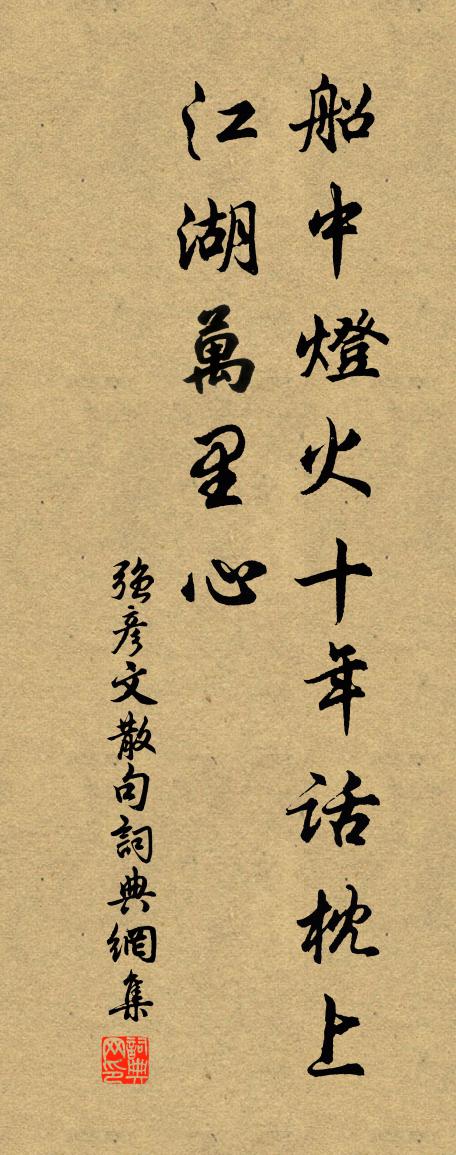 船中燈火十年話枕上
江湖萬里心
強彥文散句詞典網集
詞典网印